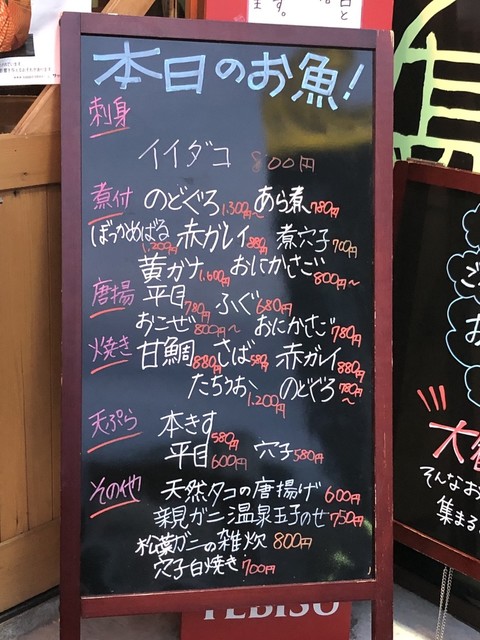 本日のお魚!
刺身
イイダコ 800円
煮付 のどぐろ 1,300円~ あら煮 780円
ぼっかめばる 1,200円 赤ガレイ 880円 煮穴子 700円
黄ガナ 1,600円 おにかさご 800円~
唐揚 平目 780円 ふぐ 680円
おこぜ 800円~ おにかさご 780円
焼き 甘鯛 880円 さば 580円 赤ガレイ 880円
たちうお 1,200円 のどぐろ 780円~
天ぷら 本きす 580円
平目 600円 穴子 580円
その他 天然タコの唐揚げ 600円
親ガニ温泉玉子のせ 750円
松葉ガニの雑炊 800円
穴子白焼き 700円
YEBISU
そんなお
集まる